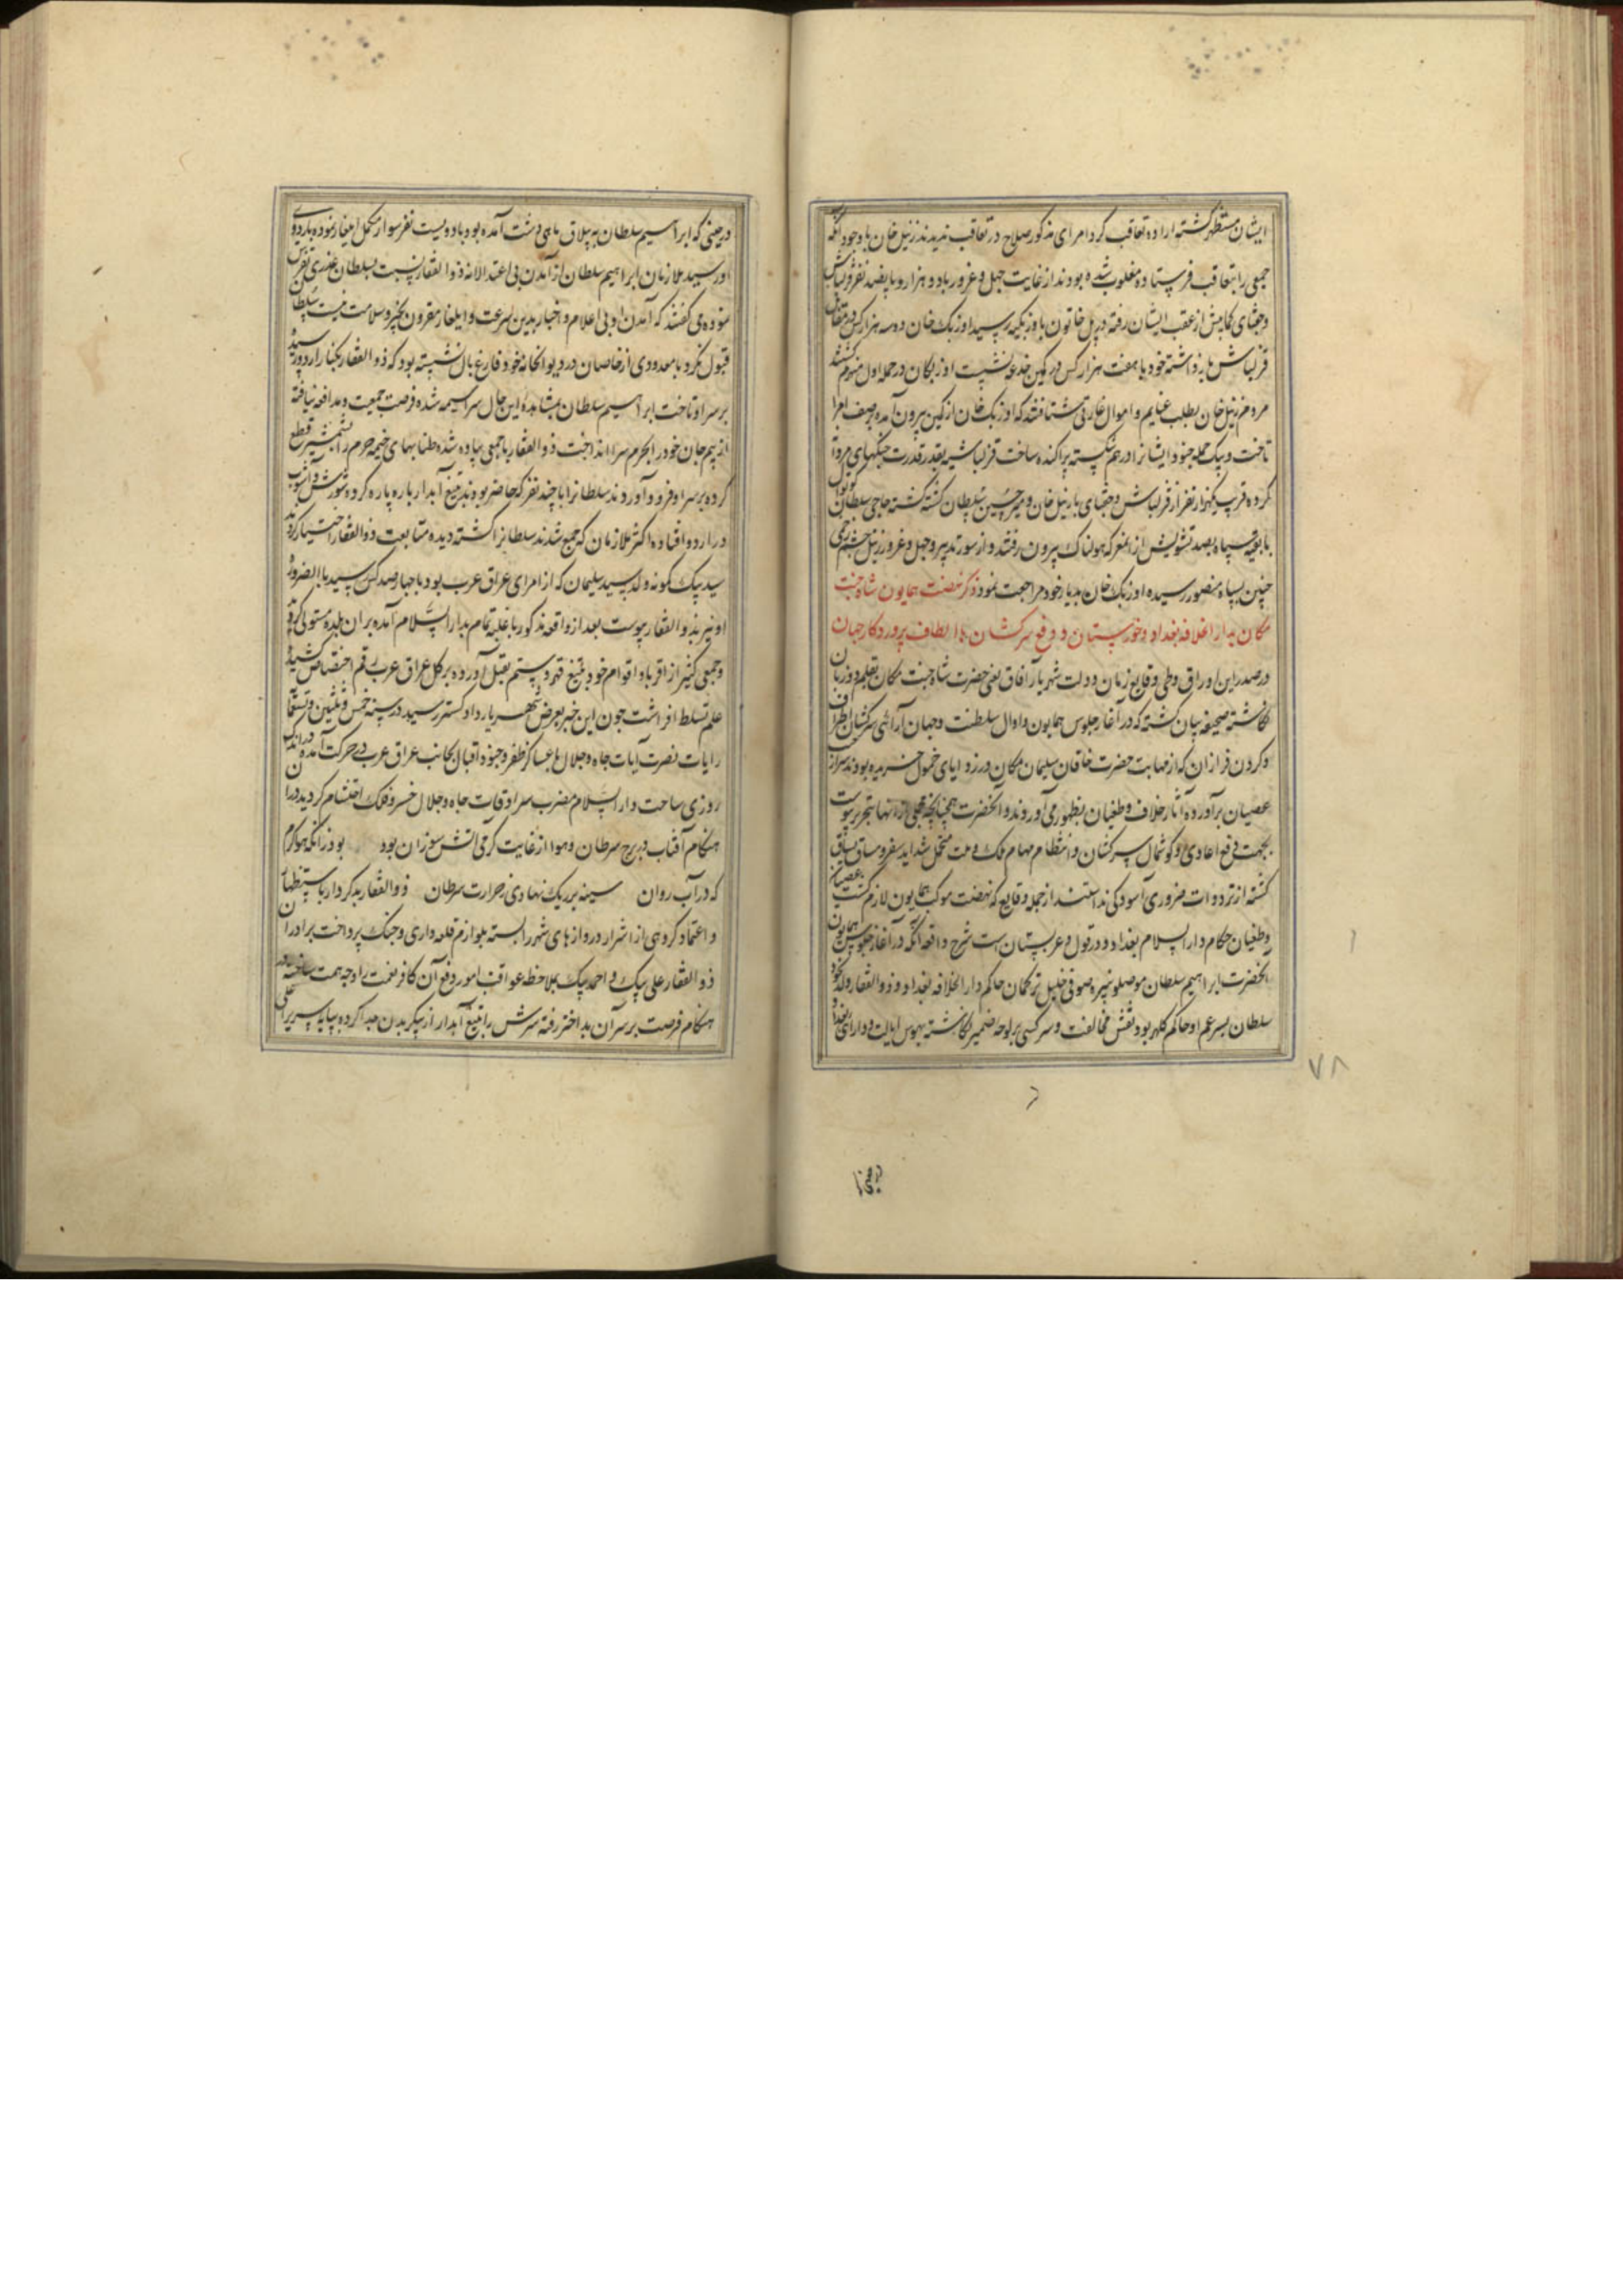 ایشان مستظهر گشته اراده تعاقب کرد امرای مذکور صلاح در تعاقب ندیدند زنیل خان با وجود آنکه
جمعی را بتعاقب فرستاده مغلوب شده بودند از غایت جهل و غرور با دو هزار و پانصد نفر قزلباش
و جغتای کمابیش از عقب ایشان رفته در پل خاتون باوزبکیه رسید اوزبک خان دو سه هزار کس در مقابل
قزلباش بازداشته خود با هفت هزار کس در کمین خدعه نشست اوزبکان در حمله اول منهزم گشتند
مردم زنیل خان بطلب غنایم و اموال غارتی شتافتند که اوزبک خان از کمین بیرون آمده بر صف امرا
تاخت و بیک حمله جنود ایشانرا درهم شکسته پراکنده ساخت قزلباشیه بقدر قدرت جنگهای مردانه
کرده قریب یکهزار نفر از قزلباش و جغتای با زنیل خان و میر حسین سلطان کشته گشته حاجی سلطان
با بقیه سپاه بصد تشویش از آن معرکه هولناک بیرون رفتند و از سوء تدبیر و جهل و غرور زنیل چشم زخمی
چنین بسپاه منصور رسیده اوزبک خان بدیار خود مراجعت نمود ذکر نهضت همایون شاه جنت
مکان بدار الخلافه بغداد و خوزستان و دفع سرکشان با الطاف پروردگار جهان
در صدر این اوراق و طی وقایع زمان دولت شهریار آفاق یعنی حضرت شاه جنت مکان بقلم دو زبان
نگاشته صحیفه بیان گشته که در آغاز جلوس همایون و اوایل سلطنت و جهان آرائی سرکشان اطراف
و گردن فرازان که از مهابت حضرت خاقان سلیمان مکان در زوایای خمول خزیده بودند سر از جیب
عصیان برآورده آثار خلاف و طغیان بظهور می آوردند و آنحضرت همچنانچه مجملی از آنها بتحریر پیوست
بجهت دفع اعادی و گوشمال سرکشان و انتظام مهام ملک و ملت متحمل شداید سفر و مشاق یساق
گشته از ترددات ضروری آسودگی نداشتند از جمله وقایع که نهضت موکب همایون لازم گشت عصیان
و طغیان حکام دار السلام بغداد و دزفول و عربستان است شرح واقعه آنکه در آغاز جلوس همایون
آنحضرت ابراهیم سلطان موصلو نبیره صوفی خلیل ترکمان حاکم دار الخلافه بغداد و ذو الفقار ولد نخود
سلطان پسر عم او حاکم کلهر بود نقش مخالفت و سرکشی بر لوحه ضمیر نگاشته بهوس ایالت و دارائی بغداد
۷۸
در حینی که ابراهیم سلطان به ییلاق ماهی دشت آمده بود با دویست نفر سوار مکمل ایلغار نموده باردوی
او رسید ملازمان ابراهیم سلطان از آمدن بی اعتدالانه ذو الفقار نسبت بسلطان غدری تفرس
نموده می گفتند که آمدن او بی اعلام و اخبار بدین سرعت و ایلغار مقرون بخیر و سلامت نیست سلطان
قبول نکرد با معدودی از خاصان در دیوانخانه خود فارغ بال نشسته بود که ذو الفقار بکنار اردو رسیده
بر سر او تاخت ابراهیم سلطان بمشاهده این حال سراسیمه شده فرصت جمعیت و مدافعه نیافته
از بیم جان خود را بحرم سرا انداخت ذو الفقار با جمعی پیاده شده طنابهای خیمه حرم را بشمشیر قطع
کرده بر سر او فرود آوردند سلطانرا با چند نفر که حاضر بودند بتیغ آبدار پاره پاره کرده شورش و آشوب
در اردو افتاده اکثر ملازمان که جمع شدند سلطانرا کشته دیده متابعت ذو الفقار اختیار کردند
سید بیک کمونه ولد سید سلیمان که از امرای عراق عرب بود با چهارصد کس رسید بالضروره
او نیز بذو الفقار پیوست بعد از واقعه مذکور با غلبه تمام بدار السلام آمده بران بلده مستولی گردید
و جمعی کثیر از اقربا و اقوام خود بتیغ قهر و ستم بقتل آورده بر کل عراق عرب رقم اختصاص کشیده
علم تسلط افراشت چون این خبر بعرض شهریار دادگستر رسید در سنه خمس و ثلثین و تسعمائه
رایات نصرت آیات جاه و جلال با عساکر ظفر و جنود اقبال بجانب عراق عرب در حرکت آمده در اندک
روزی ساحت دار السلام مضرب سرادقات جاه و جلال خسرو فلک احتشام گردید در آن
هنگام آفتاب در برج سرطان و هوا از غایت گرمی آتش سوزان بود بود زانگه هوا گرم
که در آب روان سینه بر ریک نهادی ز حرارت سرطان ذو الفقار بدکردار باستظهار
و اعتماد گروهی از اشرار دروازهای شهر را بسته بلوازم قلعه داری و جنگ پرداخت برادران
ذو الفقار علی بیک و احمد بیک بملاحظه عواقب امور دفع آن کافر نعمت را وجه همت ساخته در
هنگام فرصت بر سر آن بداختر رفته سرش را بتیغ آبدار از پیکر بدن جدا کرده بپایه سریر اعلی